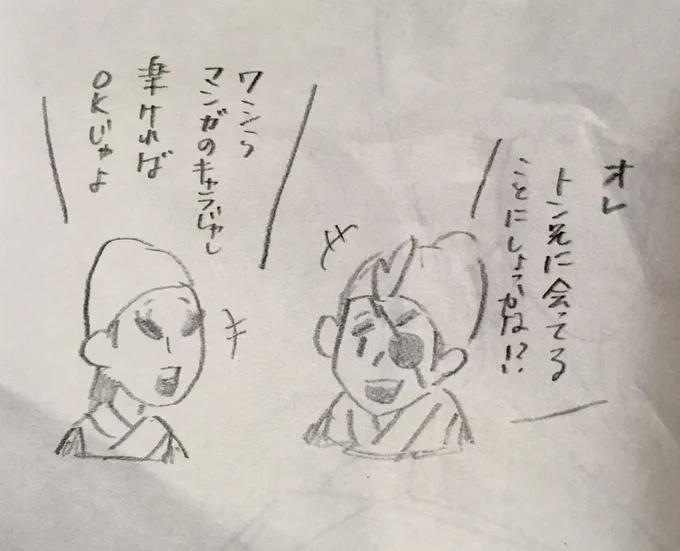 オレ
トン兄に会ってる
ことにしようかな!?
ワシら
マンガのキャラじゃし
楽ければ
OKじゃよ